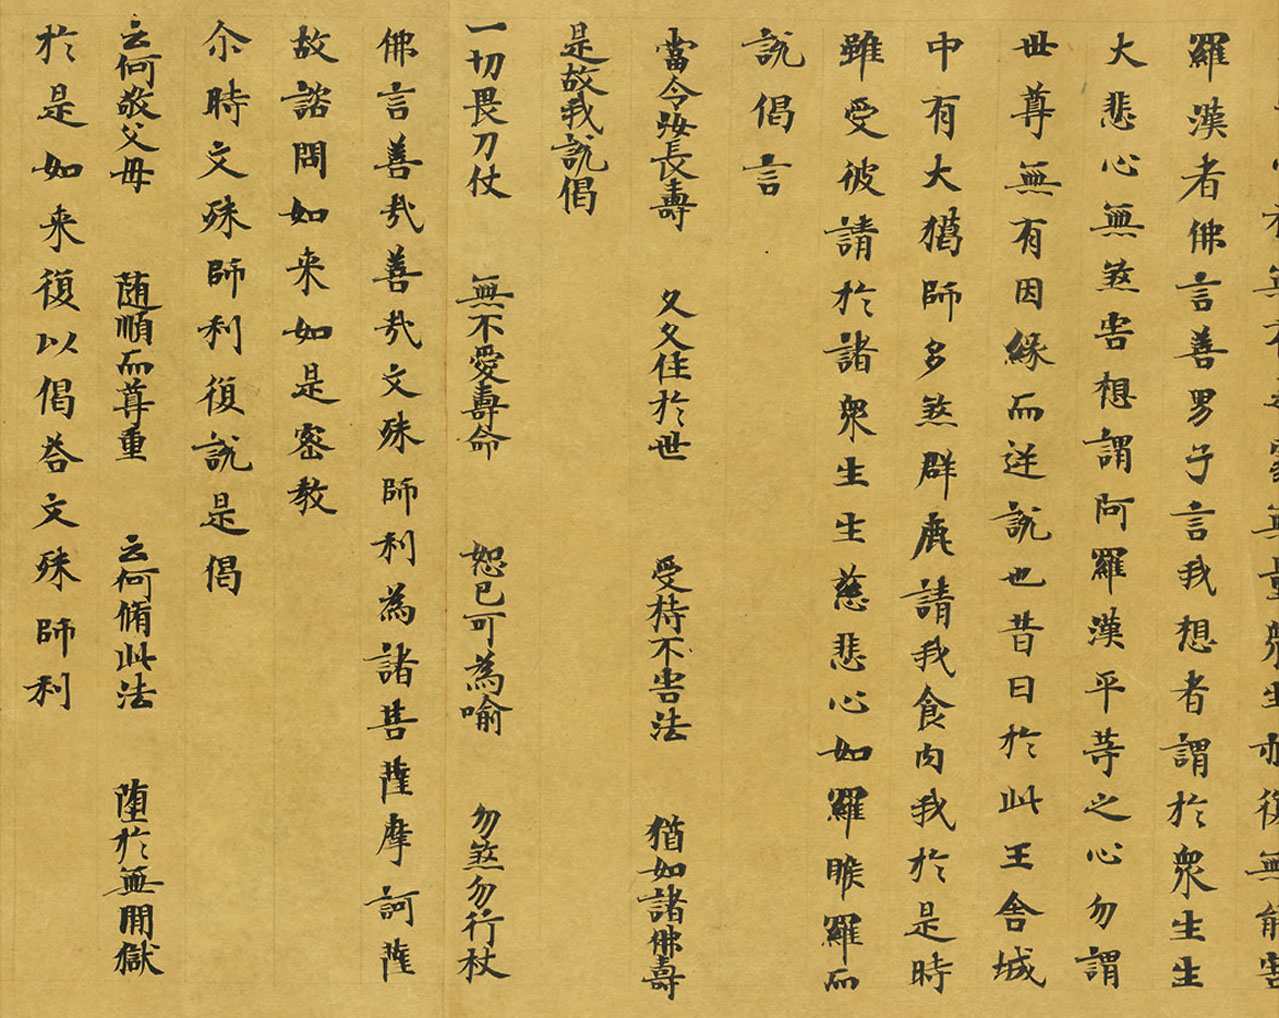 羅漢者佛言善男子言我想者謂於衆生生
大悲心無煞害想謂阿羅漢平等之心勿謂
世尊無有因緣而逆說也昔日於此王舍城
中有大獦師多煞群鹿請我食肉我於是時
雖受彼請於諸衆生生慈悲心如羅睺羅而
說偈言
當令汝長壽　久久住於世　受持不害法　猶如諸佛壽
是故我說偈
一切畏刀仗　無不愛壽命　恕己可為喻　勿煞勿行杖
佛言善哉善哉文殊師利為諸菩薩摩訶薩
故諮問如来如是密教
尒時文殊師利復說是偈
云何敬父母　随順而尊重　云何脩此法　堕於無間獄
於是如来復以偈荅文殊師利